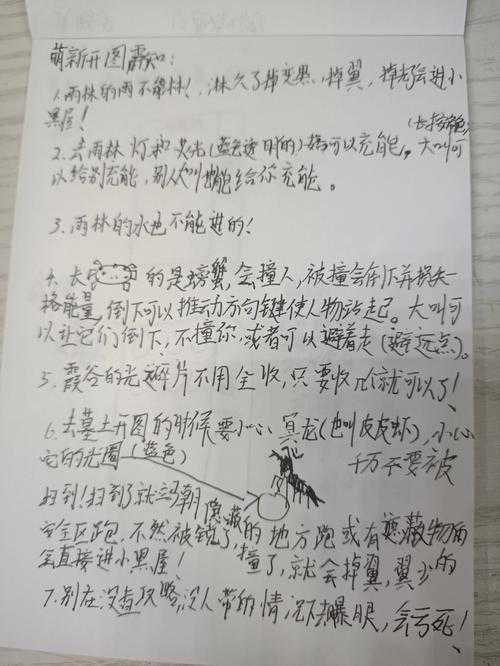 萌新开图需知：
1.雨林的雨不能淋！淋久了掉变黑、掉翼，掉光会进小
黑屋！
（长按角色）
2.去雨林 灯和火光（蓝色透明的）都可以充能。大叫可
以给别充能，别人大叫也能给你充能。
3.雨林的水也不能进的！
4.长 的是螃蟹，会撞人，被撞会倒下并损失一
格能量，倒下可以推动方向键使人物站起。大叫可
以让它们倒下，不撞你，或者可以避着走（避远点）。
5.霞谷的光碎片不用全收，只要收几就可以了！
6.去墓土开图的时候要小心 冥龙（也叫皮皮虾），小心
它的光圈（蓝色） 千万不要被
扫到！扫到了就立朝 隐藏的地方跑或有遮藏物的
安全区跑，不然被锁了，撞了，就会掉翼，翼少的
会直接进小黑屋！
7.别在没看攻略，没人带的情况下去暴眠，会亏死！